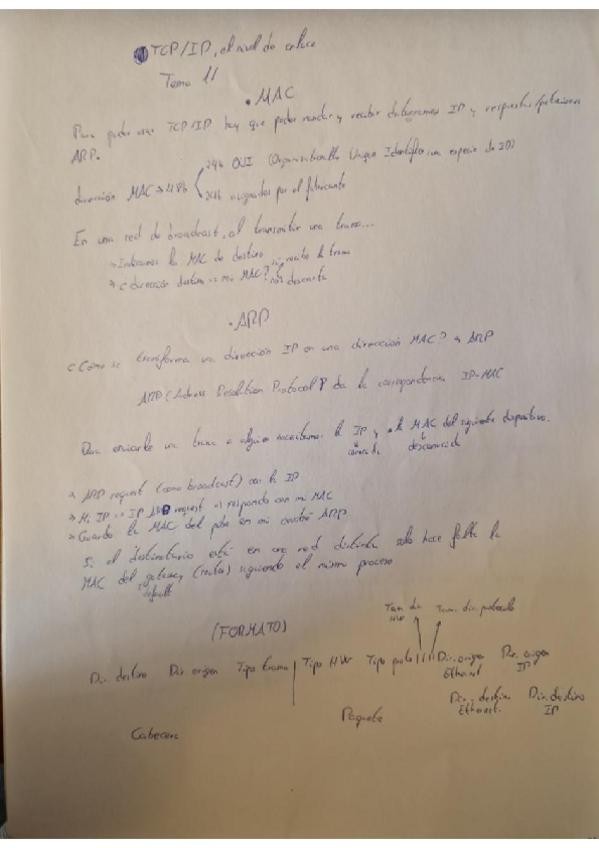 TCP/IP, el nivel de enlace
Tema 11
• MAC
Para poder usar TCP/IP hay que poder mandar y recibir datagramas IP y respuestas/peticiones
ARP.
24b OUI (Organizationally Unique Identifier, una especie de ID)
dirección MAC → 48b
24b asignados por el fabricante
En una red de broadcast, al transmitir una trama...
→ Indicamos la MAC de destino
sí, recibo la trama
→ ¿dirección destino == mi MAC?
no, descarta
• ARP
¿Cómo se transforma una dirección IP en una dirección MAC? → ARP
ARP (Adress Resolution Protocol) da la correspondencia IP-MAC
Para enviarle una trama a alguien necesitamos la IP y la MAC del siguiente dispositivo.
conocida desconocida
→ ARP request (como broadcast) con la IP
→ Mi IP == IP ARP request → respondo con mi MAC
→ Guardo la MAC del in mi ARP
Si el destinatario está en una red distinta solo hace falta la
MAC del gateway (router) siguiendo el mismo proceso
default
Tam dir HW
Tam. dir. protocolo
(FORMATO)
Dir. destino Dir origen Tipo trama Tipo HW Tipo proto Dir. origen Ethernet Dir. origen IP
Dir. destino Ethernet. Dir. destino IP
Paquete
Cabecera